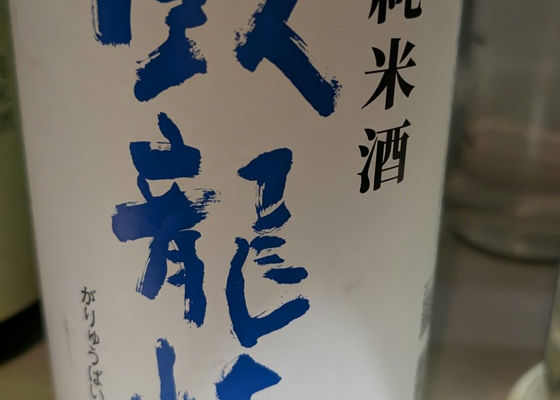 純米酒
臥龍
がりゅうばい